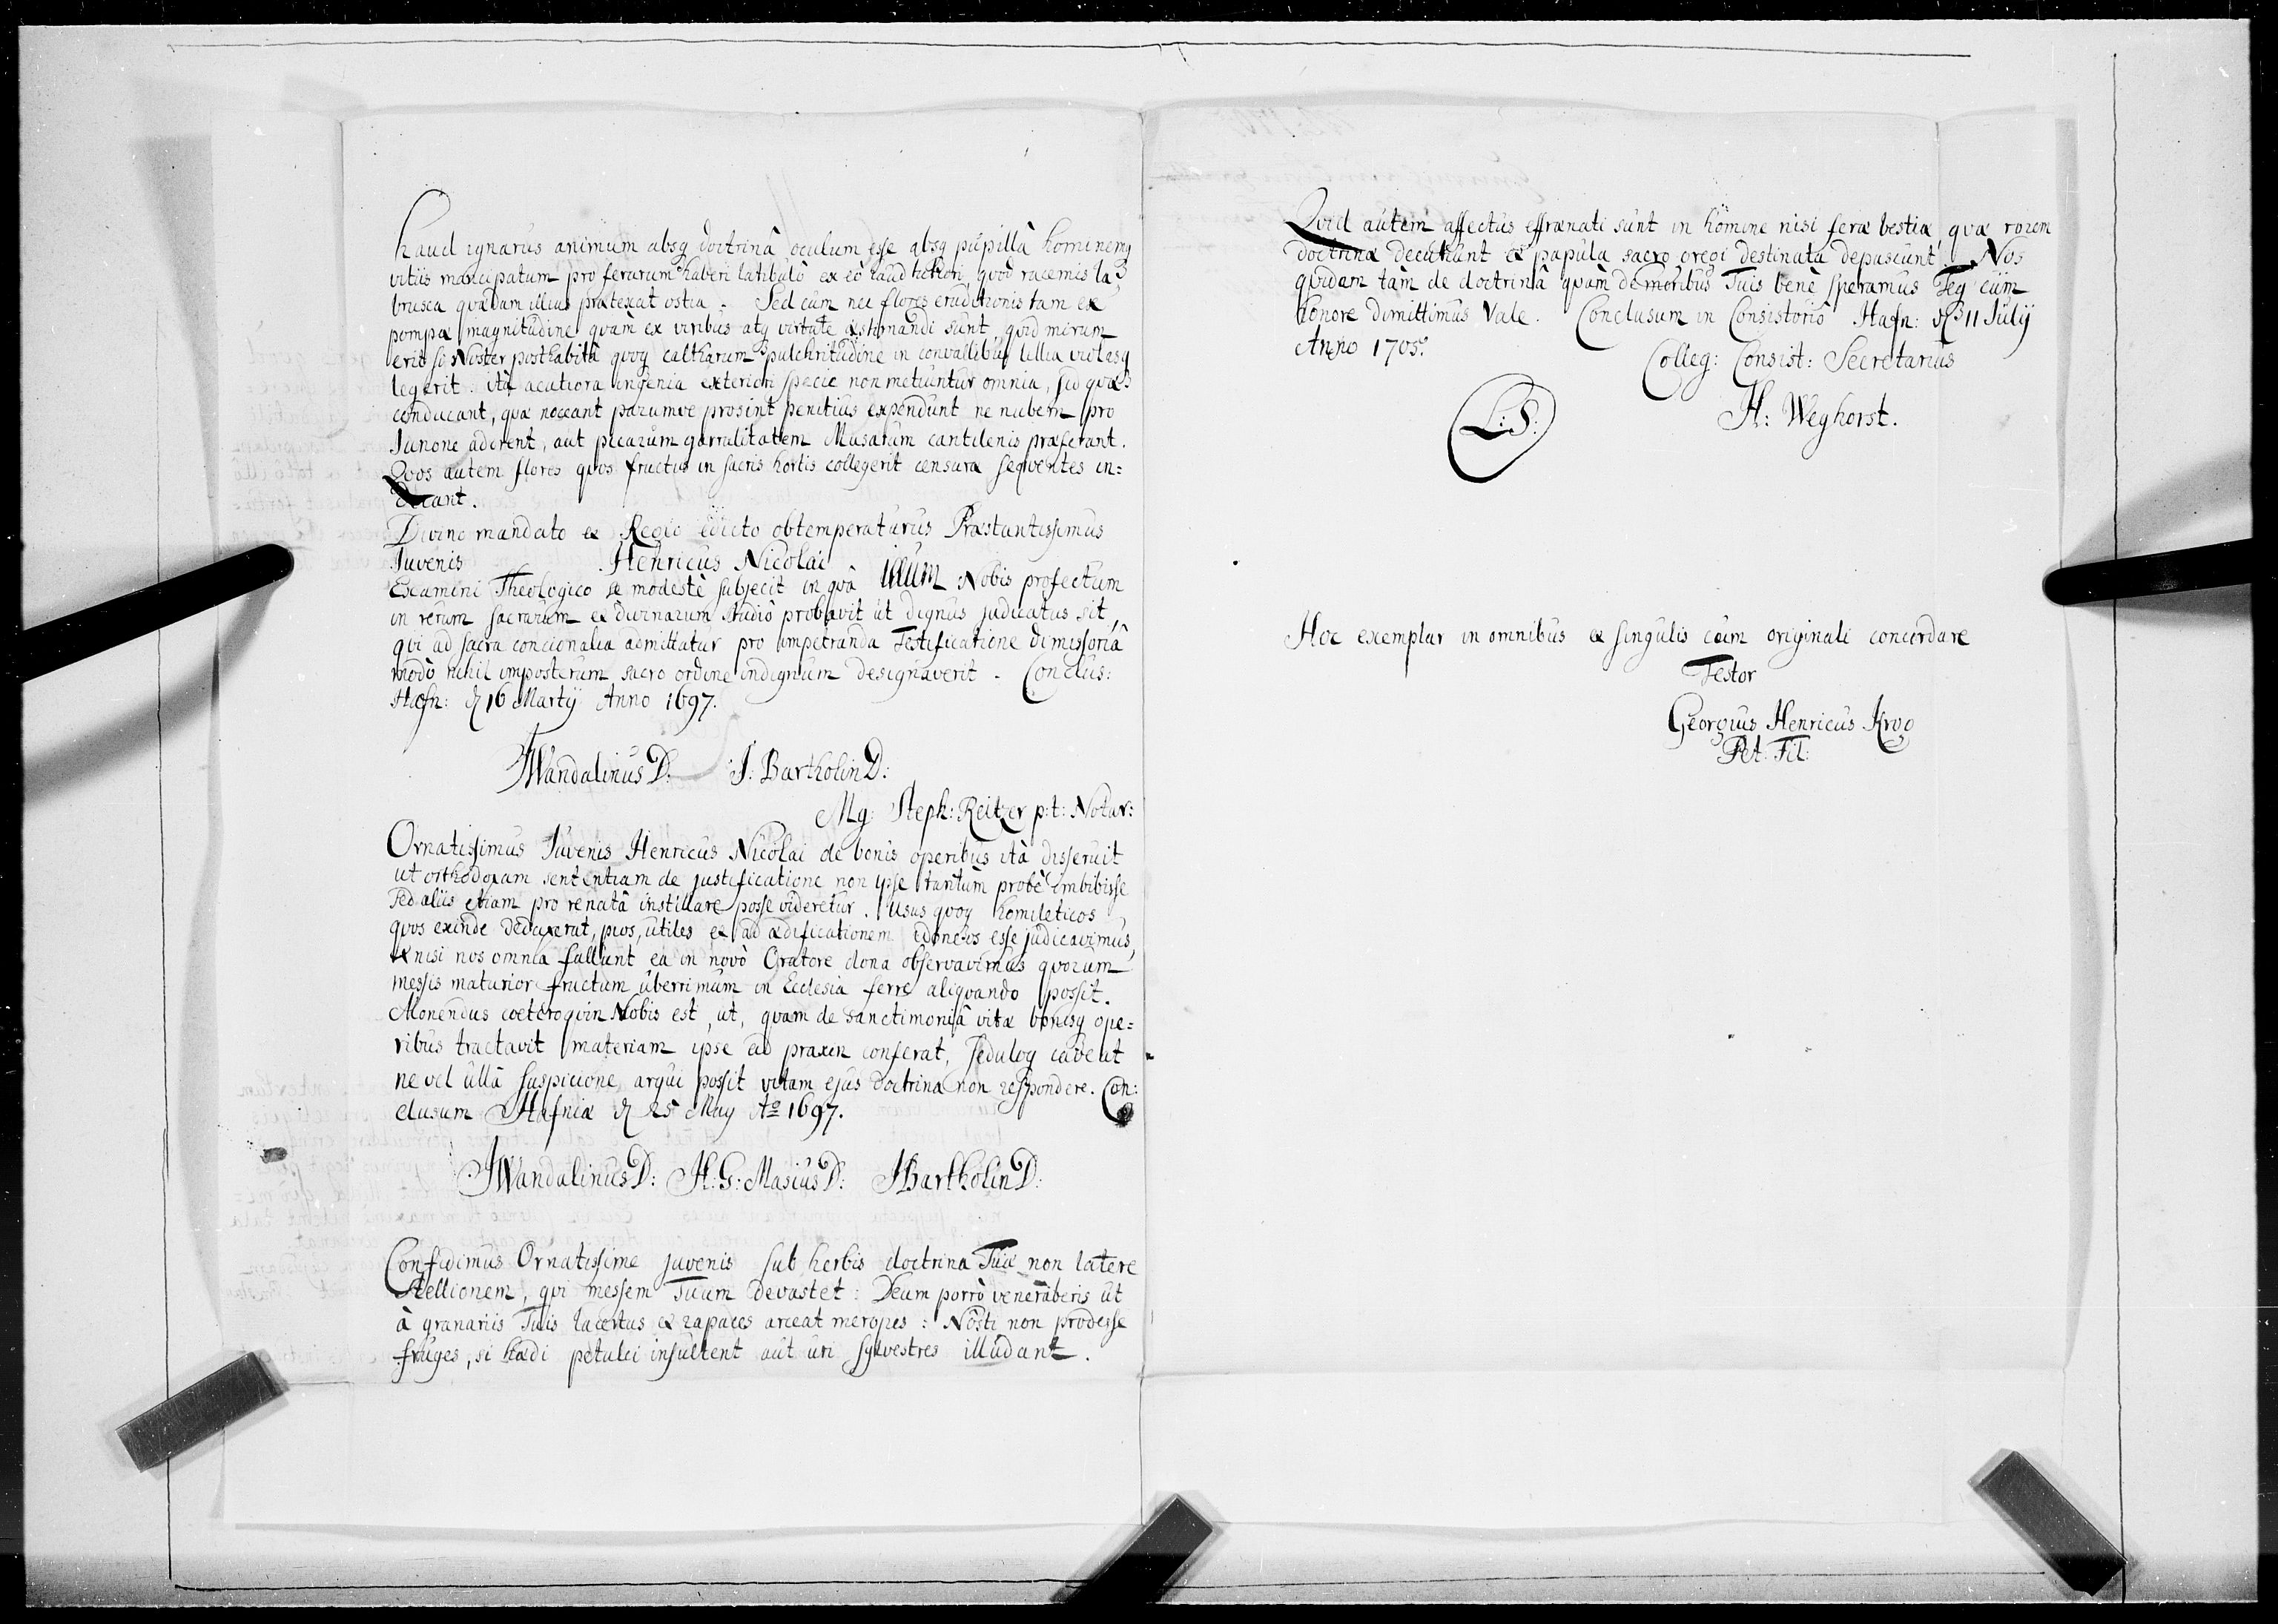 haud ignarus animum absq doctrinâ oculum esse absq pupillâ hominemq
vitiis mancipatum pro ferarum haberi latibulô ex eô haud meliori, quod racemis la
brusca quædam illius prætexat ostia. Sed cum nec flores eruditionis tam ex
pompæ magnitudine quàm ex viribus atq virtute æstimandi sunt, quid mirum
erit si Noster posthabitâ quoq caltharum pulchritudine in convallibus lillia violasq
legerit. ità acutiora ingenia exteriori specie non metiuntur omnia, sed quæ
conducant, quæ noceant parumve prosint penitius expendunt ne nubem pro
Junone adorent, aut picarum garrulitatem Musarum cantilenis præferant.
Qvos autem flores qvos fructus in sacris hortis collegerit censuræ seqventes in=
dicant.
Divino mandato et Regio edicto obtemperaturus Præstantissimus
Juvenis Henricus Nicolai
Examini Theologico se modestè subjecit in qvô illum Nobis profectum
in rerum sacrarum et divinarum studiô probavit ut dignus judicatus sit,
qvi ad sacra concionalia admittatur pro impetranda Testificatione dimissoriâ
modò nihil imposterum sacro ordine indignum designaverit. Conclus:
Hafn: d 16 Martij Anno 1697.
JWandalinus D: J: Bartholin D:
Mg: Steph: Reitzer p:t: Notar:
Ornatissimus Juvenis Henricus Nicolai de bonis operibus ità disseruit
ut orthodoxam sententiam de justificatione non ipse tantùm probè imbibisse
sed aliis etiam pro renatâ instillare posse videretur. Usus qvoq homileticos
qvos exinde deduxerat, pios, utiles et ad ædificationem idoneos esse judicavimus,
et nisi nos omnia fallunt ea in novô Oratore dona observavimus qvorum
messis maturior fructum uberrimum in Ecclesia ferre aliqvando possit.
Monendus coeteroqvin Nobis est, ut, qvam de sanctimoniâ vitæ bonisq ope=
ribus tractavit materiam ipse ad praxin conferat, seduloq caveat
ne vel ullâ suspicione argui possit vitam ejus doctrinæ non respondere. Con:
clusum Hafniæ d 25 May Ao 1697.
JWandalinus D: H: G: Masius D: JBartholin D:
Confidimus Ornatissime juvenis sub herbis doctrinæ Tuæ non latere
stellionem, qvi messem Tuam devastet: Deum porrò veneraberis ut
à granariis Tuis lacertas et rapaces arceat meropes: Nosti non prodesse
fruges, si hædi petulci insultent aut uri sylvestres illudant.
Qvid autem affectus effrænati sunt in homine nisi feræ bestiæ, qvæ rorem
doctrinæ decutiunt et papula sacro gregi destinata depascunt. Nos
qvidam tàm de doctrinâ qvàm de moribus Tuis benè speramus Teq cum
honore dimittimus Vale. Conclusum in Consistoriô Hafn: d 11 Julij
Anno 1705.
Colleg: Consist: Secretarius
H: Weghorst.
L:S:
Hoc exemplar in omnibus et singulis cum originali concordare
Testor
Georgius Henricus Krog
Pet: Fil: